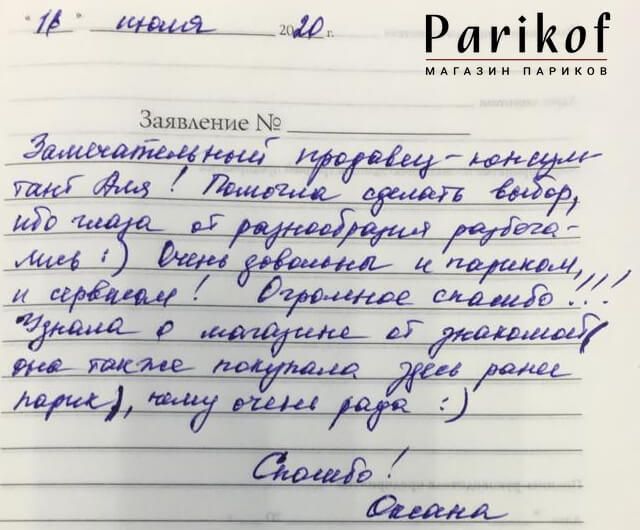 "16" июля 2020 г.
Parikof
МАГАЗИН ПАРИКОВ
Заявление №
Замечательный продавец-консуль-
тант Аля! Помогла сделать выбор,
ибо глаза от разнообразия разбега-
лись :) Очень довольны и париком,
и сервисом! Огромное спасибо!!!
Узнала о магазине от знакомой(
она также покупала здесь ранее
парик), чему очень рада :)
Спасибо!
Оксана